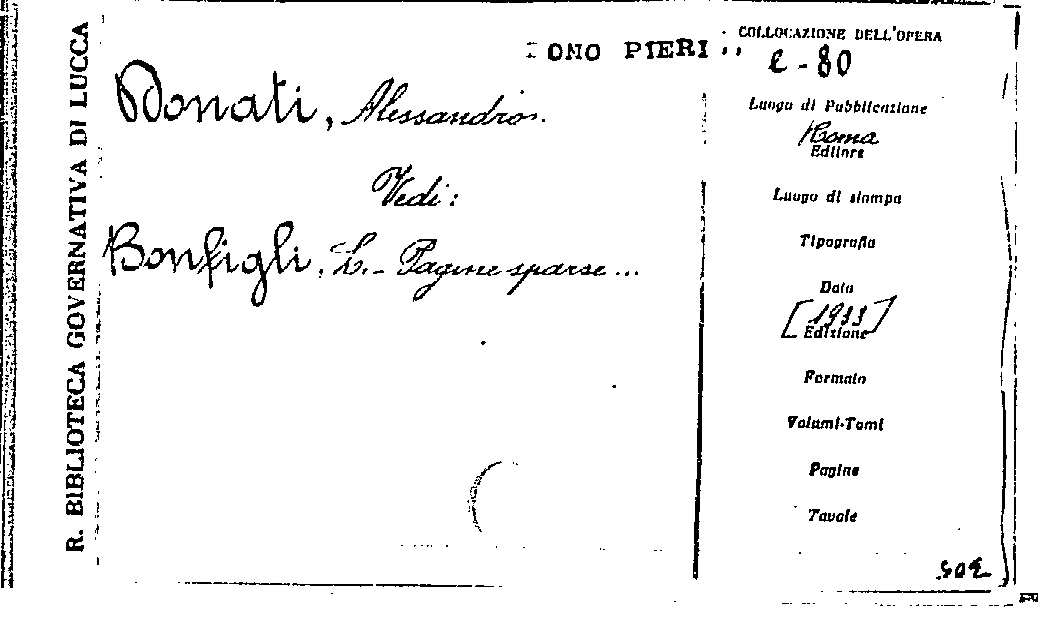 R. BIBLIOTECA GOVERNATIVA DI LUCCA
ONO PIERI
Donati, Alessandro.
Vedi:
Bonfigli, L. - Pagine sparse...
COLLOCAZIONE DELL'OPERA
C - 80
Luogo di Pubblicazione
Roma
Editore
Luogo di stampa
Tipografia
Data
[1933]
Edizione
Formato
Volumi-Tomi
Pagine
Tavole